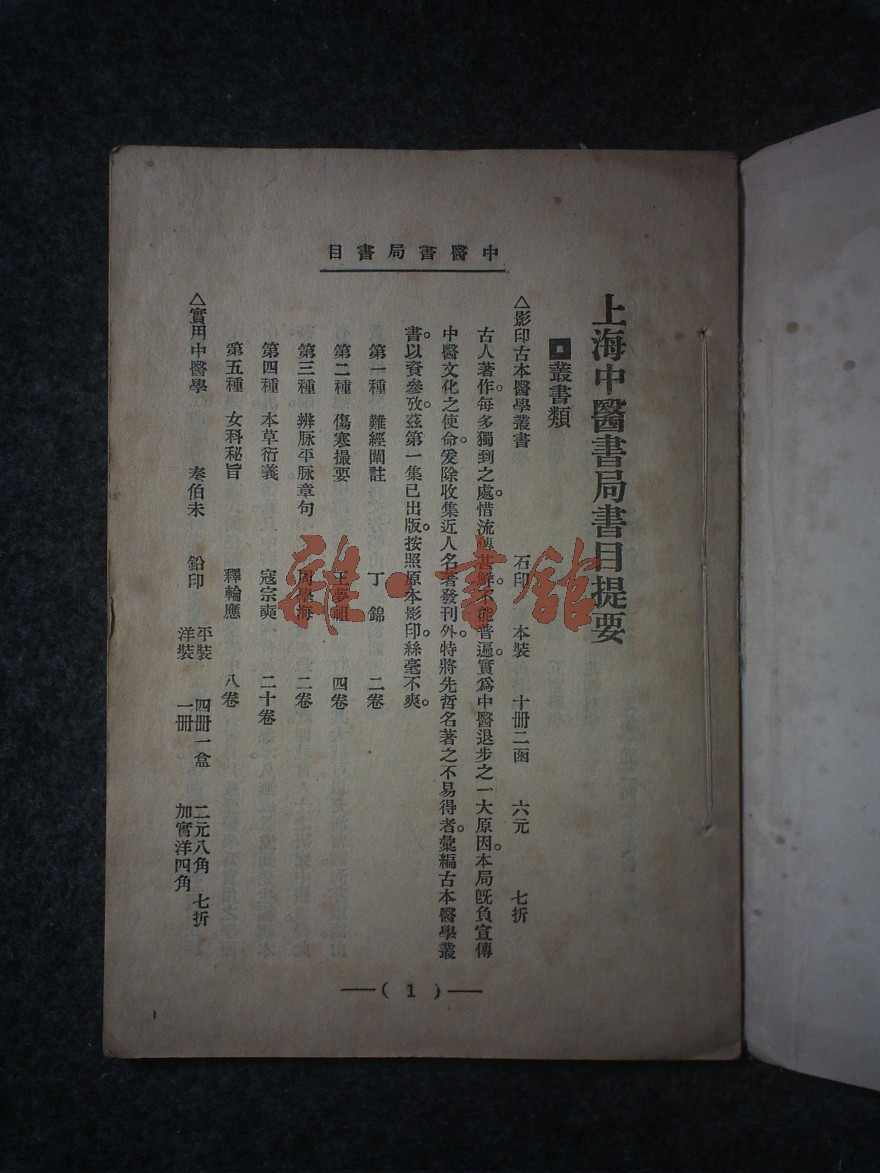 中醫書局書目
上海中醫書局書目提要
叢書類
△影印古本醫學叢書 石印 本裝 十冊二函 六元 七折
古人著作。每多獨到之處。惜流傳甚鮮。不能普遍。實爲中醫退步之一大原因。本局旣負宣傳
中醫文化之使命。爰除收集近人名著發刊外。特將先哲名著之不易得者。彙編古本醫學叢
書。以資參攷。茲第一集已出版。按照原本影印。絲毫不爽。
第一種 難經闡註 丁錦 二卷
第二種 傷寒撮要 王夢祖 四卷
第三種 辨脉平脉章句 周學海 二卷
第四種 本草衍義 寇宗奭 二十卷
第五種 女科秘旨 釋輪應 八卷
△實用中醫學 秦伯未 鉛印 平裝 四冊一盒 二元八角 七折
洋裝 一冊 加實洋四角
—( 1 )—
雜·書館